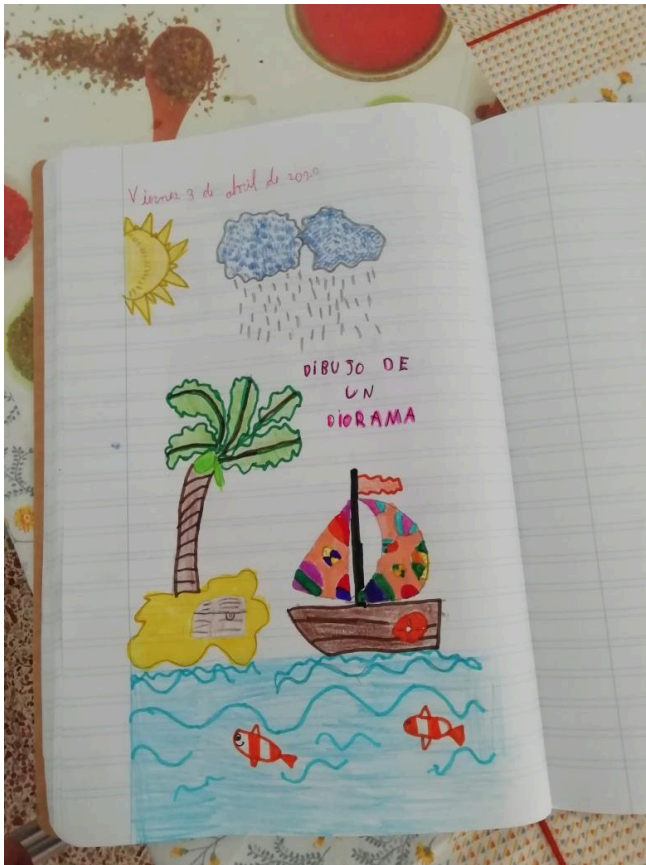 Viernes 3 de abril de 2020
DIBUJO DE
UN
DIORAMA